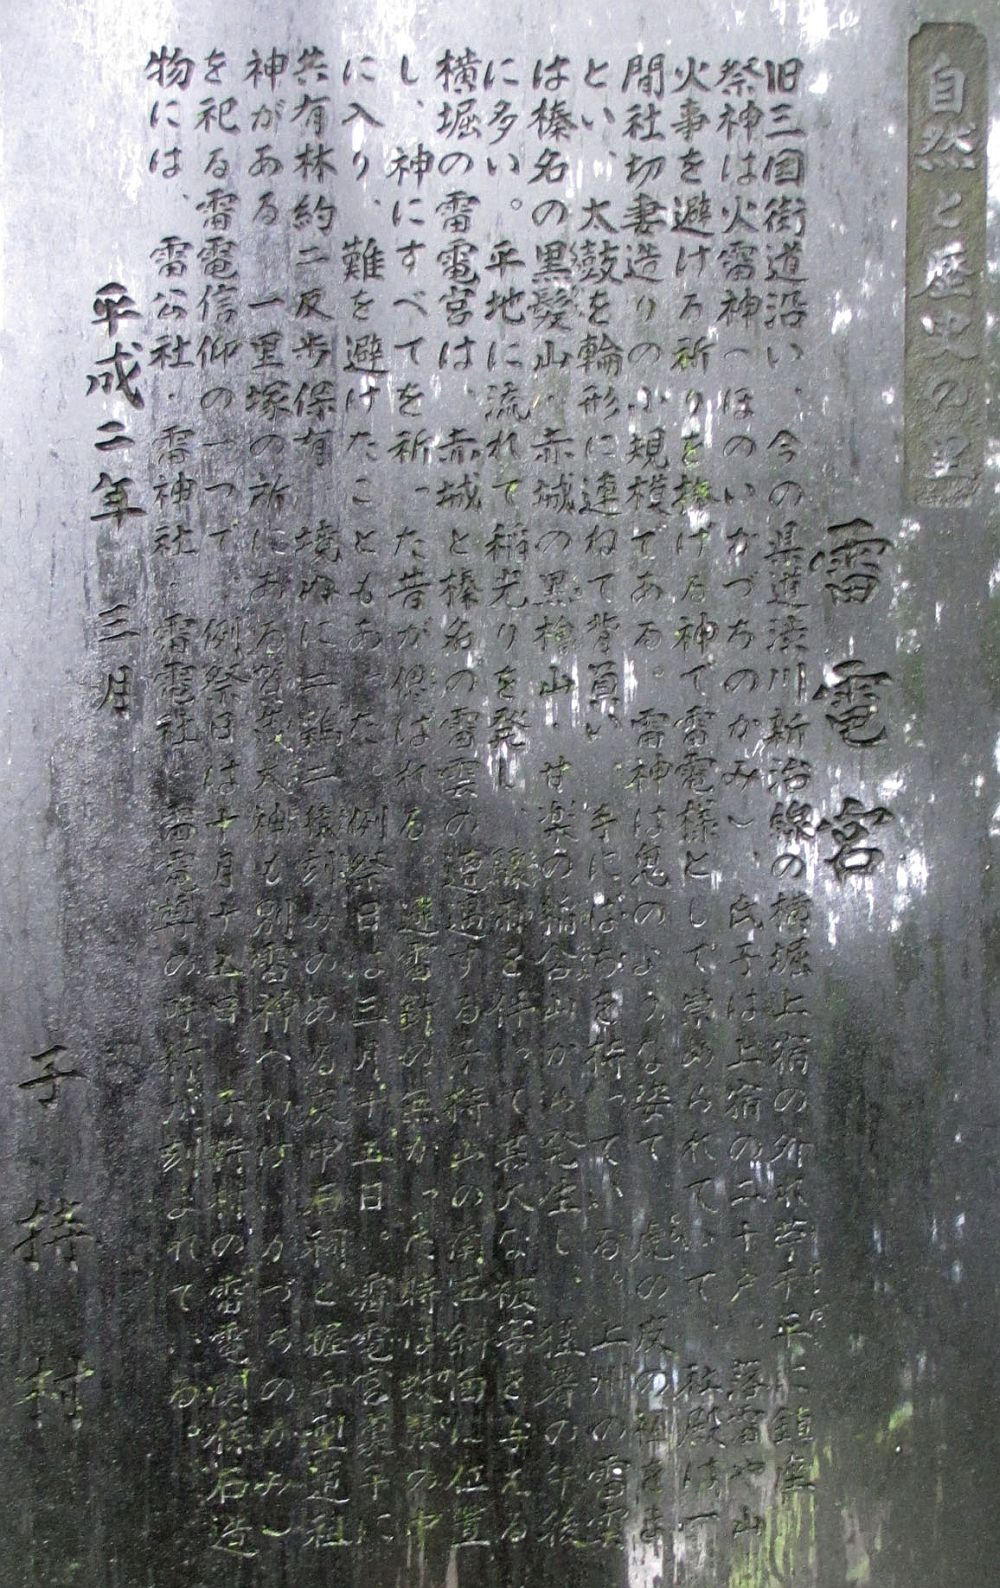 自然と歴史の里
雷電宮
旧三国街道沿い、今の県道渋川新治線の横堀上宿の外れ芋干正に鎮座
祭神は火雷神(ほのいかづちのかみ)、氏子は上宿の二十戸。落雷や山
火事を避ける祈りを捧げる神で雷電様として崇められていて、社殿は一
間社切妻造りの小規模である。雷神は鬼のような姿で虎の皮の褌をま
とい、太鼓を輪形に連ねて背負い、手にばちを持っている。上州の雷雲
は榛名の黒髪山・赤城の黒檜山・甘楽の稲含山から発生し、猛暑の午後
に多い。平地に流れて稲光りを発し、驟雨を伴って甚大な被害を与える
横堀の雷電宮は、赤城と榛名の雷雲の遭遇する子持山の南面斜面に位置
し、神にすべてを祈った昔が偲ばれる。避雷針の無かった時は蚊帳の中
に入り、難を避けたこともあった。例祭日は三月十五日。雷電宮裏手に
共有林約二反歩保有 境内に二鶏二猿刻みのある庚申石祠と握手型道祖
神がある 一里塚の所にある 大神も別雷神(わけいかづちのかみ)
を祀る雷電信仰の一つで、例祭日は十月十五日 子持村の雷電関係石造
物には、雷公社・雷神社・雷電社と雷電尊の呼称が刻まれている。
平成二年 三月
子持村